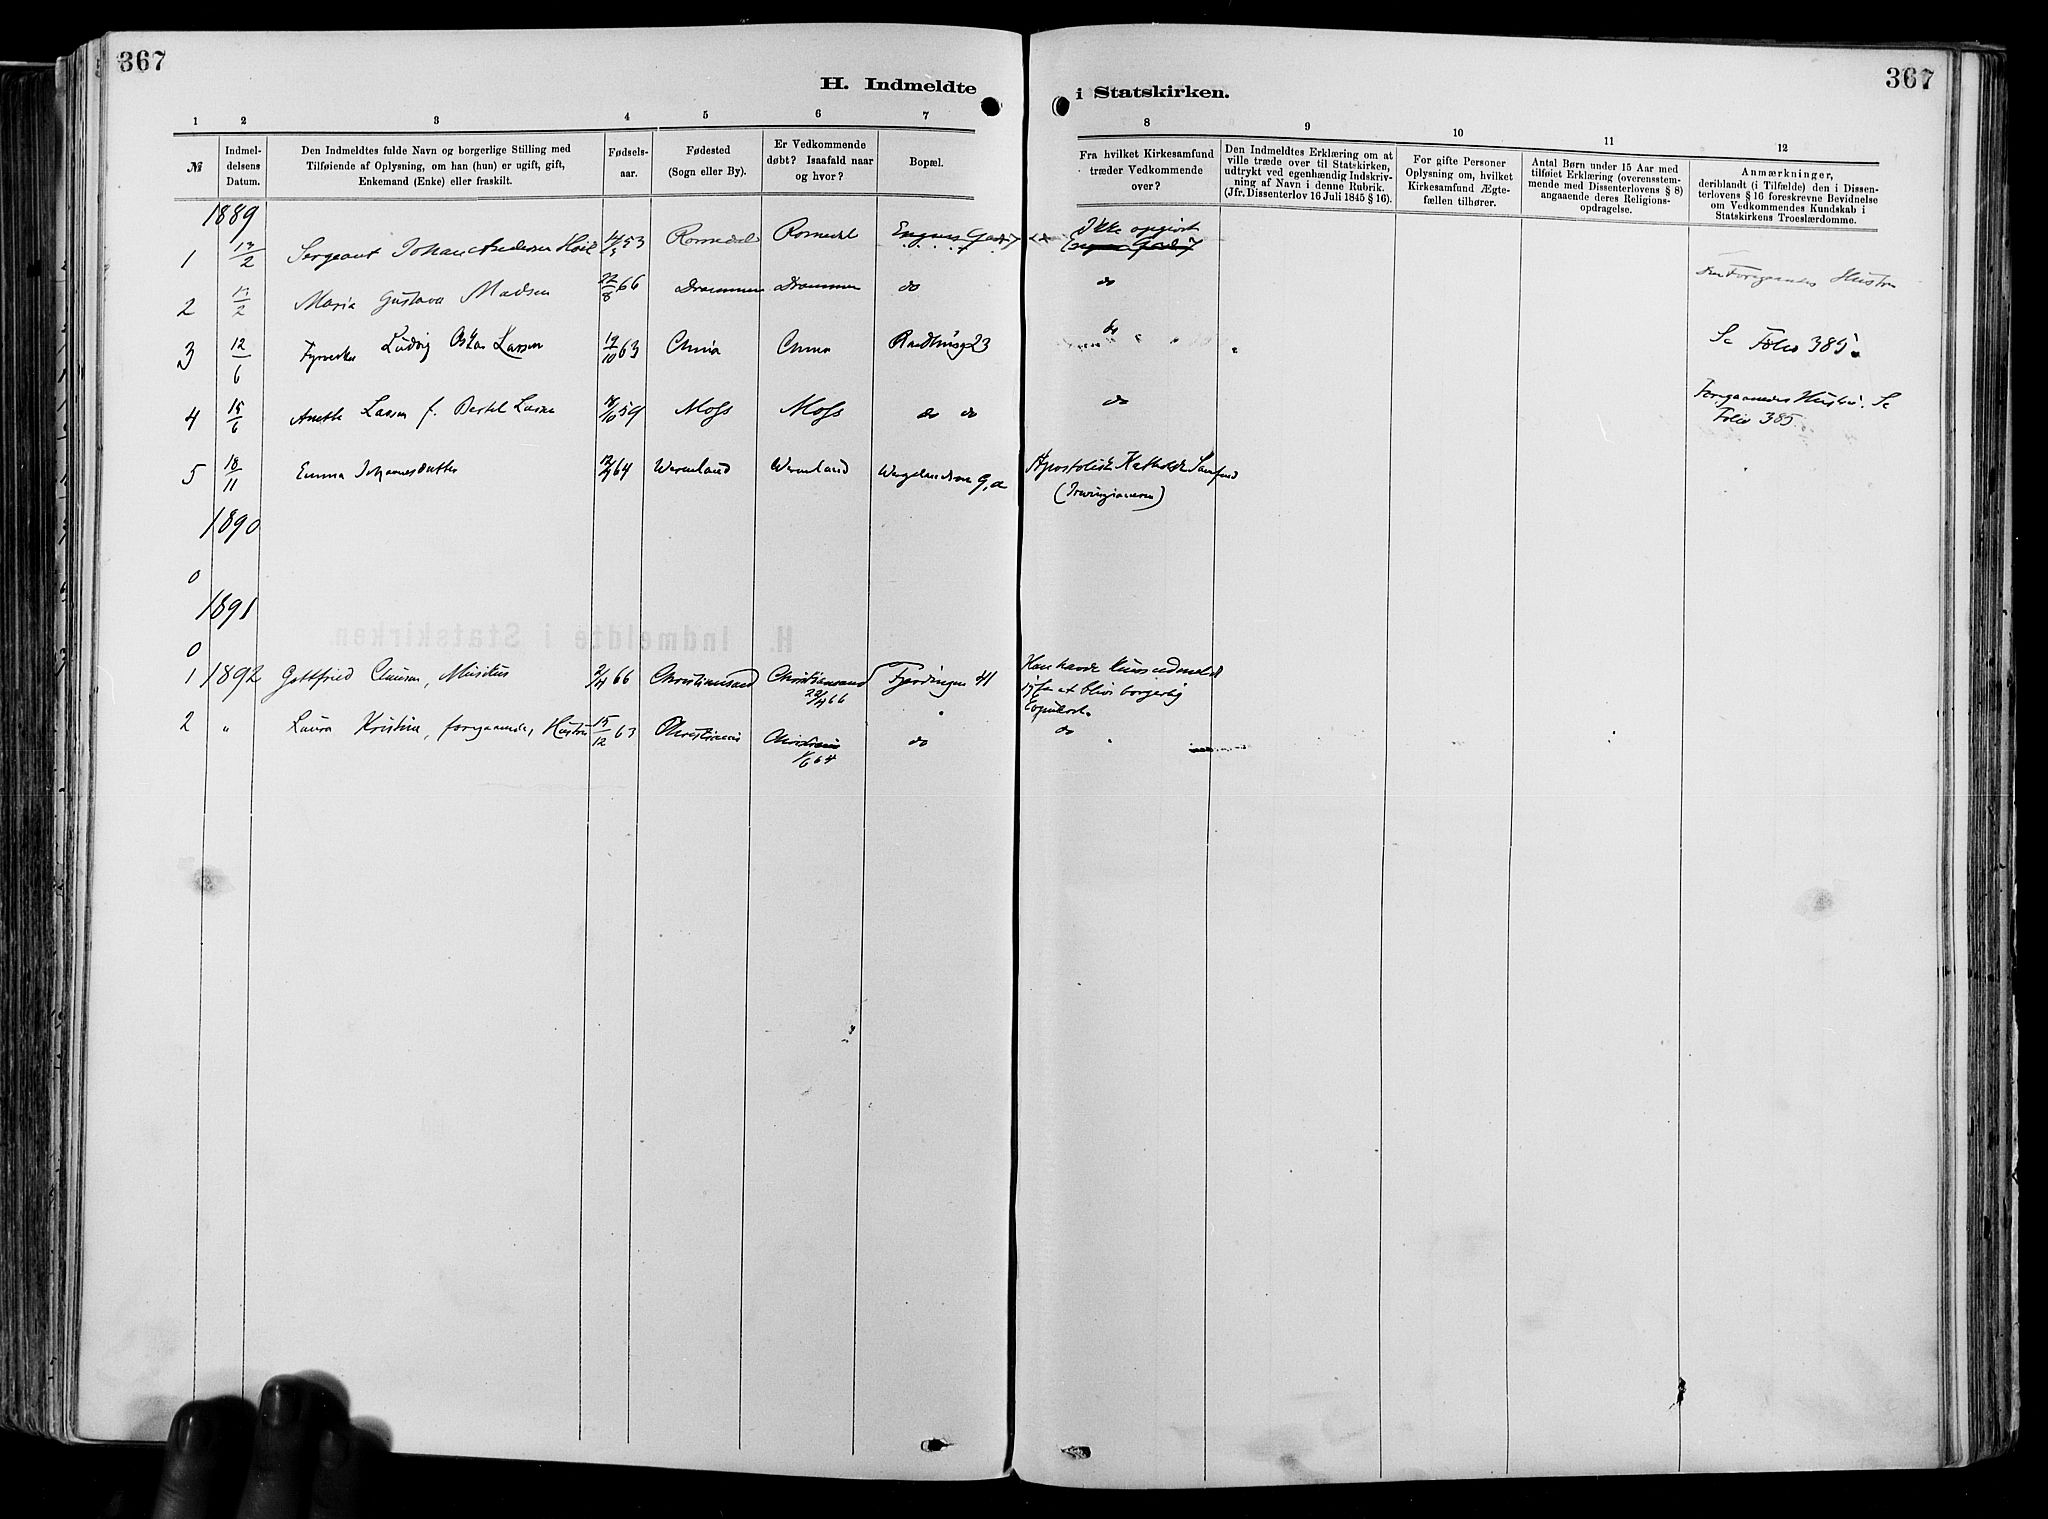 367
367
H. Indmeldte i Statskirken.
1 2 3 4 5 6 7 8 9 10 11 12
№
Indmel-
delsens
Datum.
Den Indmeldtes fulde Navn og borgerlige Stilling med
Tilføiende af Oplysning, om han (hun) er ugift, gift,
Enkemand (Enke) eller fraskilt.
Fødsels-
aar.
Fødested
(Sogn eller By).
Er Vedkommende
døbt? Isaafald naar
og hvor?
Bopæl.
Fra hvilket Kirkesamfund
træder Vedkommende
over?
Den Indmeldtes Erklæring om at
ville træde over til Statskirken,
udtrykt ved egenhændig Indskriv-
ning af Navn i denne Rubrik.
(Jfr. Dissenterlov 16 Juli 1845 § 16).
For gifte Personer
Oplysning om, hvilket
Kirkesamfund Ægte-
fællen tilhører.
Antal Børn under 15 Aar med
tilføiet Erklæring (overensstem-
mende med Dissenterlovens § 8)
angaaende deres Religions-
opdragelse.
Anmærkninger,
deriblandt (i Tilfælde) den i Dissen-
terlovens § 16 foreskrevne Bevidnelse
om Vedkommendes Kundskab i
Statskirkens Troeslærdomme.
1889
1 Sergeant Johan 53 Romedal Romedal Ikke opgivet
2 Maria Gustava Madsen 22/8 66 Drammen Drammen do do Forgaaendes Hustru
3 12/6 Ludvig Oskar Larsen 63 Chnia Chnia 23 do Se Folio 385.
4 15/6 Anette Larsen f. 59 Moss Moss do do do Forgaaendes Hustru. Se
Folio 385.
5 18/11 Emma Johannesdatter 64 Wermland Wermland 9,a Apostolisk Katholske Samfund
(Irvingianerne)
1890
0
1891
0
1 1892 Gottfried Clausen, Musikus 66 Christianssand Christianssand Fjerdingen 41 Han havde
22/4 66 at blive borgerlig
2 " Laura Kristine, forgaaendes Hustru 15/12 63 Christiania Christiania do do
1/6 64
H. Indmeldte i Statskirken.